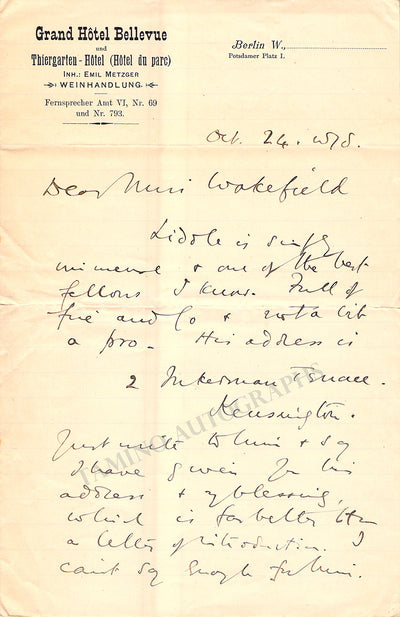 Grand Hôtel Bellevue
und
Thiergarten - Hôtel (Hôtel du parc)
Inh.: Emil Metzger
WEINHANDLUNG
Fernsprecher Amt VI, Nr. 69
und Nr. 793.
Berlin W.,
Potsdamer Platz 1.
Oct. 24.
Dear Miss Wakefield
Liddle is simply
immense & one of the best
fellows I know. Full of
fire and Go & not a bit
a pro. His address is
2 Inkerman Terrace.
Kensington.
Just write to him & say
I have given you his
address & my blessing,
which is far better than
a letter of introduction. I
can't say enough for him.
TAMINO AUTOGRAPHS